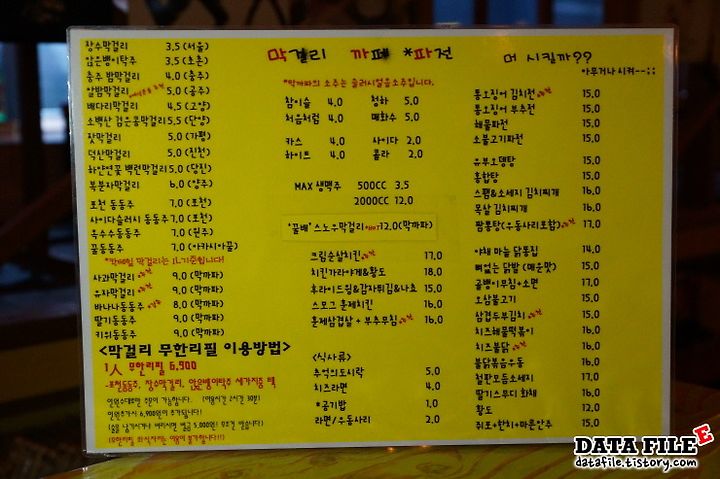 막걸리 까페 *파전
머 시킬까??
아무거나 시켜--;;
장수막걸리 3.5 (서울)
앉은뱅이탁주 3.5 (초촌)
충주 밤막걸리 4.0 (충주)
알밤막걸리 5.0 (공주)
배다리막걸리 4.5 (고양)
소백산 검은콩막걸리 5.5 (단양)
잣막걸리 5.0 (가평)
덕산막걸리 5.0 (진천)
하얀연꽃 백련막걸리 5.0 (당진)
복분자막걸리 6.0 (양주)
포천 동동주 7.0 (포천)
사이다슬러시 동동주 7.0 (포천)
옥수수동동주 7.0 (원주)
꿀동동주 7.0 (아카시아꿀)
막걸리는 1L기준입니다!
사과막걸리 9.0 (막까파)
유자막걸리 9.0 (막까파)
바나나동동주 8.0 (막까파)
딸기동동주 9.0 (막까파)
키위동동주 9.0 (막까파)
<막걸리 무한리필 이용방법>
1人 무한리필 6,900
-포천동동주, 장수막걸리, 앉은뱅이탁주 세가지중 택
인원수대로만 주문이 가능합니다. (이용시간 2시간 30분)
인원추가시 6,900원이 추가됩니다!
(술을 남기시거나 버리시면 벌금 5,000원! 무조건 받습니다)
(무한리필 좌석지는 이용이 불가합니다!!!)
*막까파의 소주는 슬러시얼음소주입니다.
참이슬 4.0 청하 5.0
처음처럼 4.0 매화수 5.0
카스 4.0 사이다 2.0
하이트 4.0 콜라 2.0
MAX 생맥주 500CC 3.5
2000CC 12.0
'꿀배' 스노우막걸리 12.0(막까파)
크림순살치킨 17.0
치킨가라아게&황도 18.0
후라이드윙&감자튀김&나쵸 15.0
스모그 훈제치킨 16.0
훈제삼겹살 + 부추무침 16.0
<식사류>
추억의도시락 5.0
치즈라면 4.0
*공기밥 1.0
라면/우동사리 2.0
통오징어 김치전 15.0
통오징어 부추전 15.0
해물파전 15.0
소불고기파전 15.0
유부오뎅탕 15.0
홍합탕 15.0
스팸&소세지 김치찌개 16.0
목살 김치찌개 16.0
짬뽕탕(우동사리포함) 17.0
야채 마늘 닭똥집 14.0
뼈없는 닭발 (매운맛) 15.0
골뱅이무침+소면 17.0
오삼불고기 15.0
삼겹두부김치 15.0
치즈해물떡볶이 15.0
치즈불닭 16.0
불닭볶음우동 16.0
철판모듬소세지 17.0
딸기스무디 화채 16.0
황도 12.0
쥐포+한치+마른안주 15.0
DATA FILE E
datafile.tistory.com